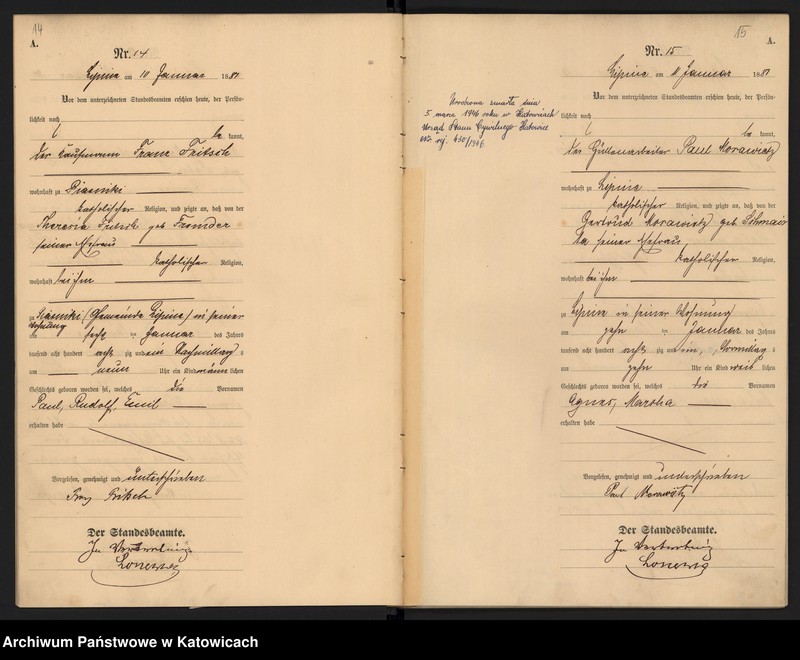 14
A.
Nr. 14
Lipine am 10 Januar 1881
Vor dem unterzeichneten Standesbeamten erschien heute, der Persön-
lichkeit nach
be kannt,
der Kaufmann Franz Fritsch
wohnhaft zu Piasniki
katholischer Religion, und zeigte an, daß von der
Theresia Fritsch geb
seiner Ehefrau
katholischer Religion,
wohnhaft bei ihm
zu Piasniki (Gemeinde Lipine) in seiner
Wohnung
am ten Januar des Jahres
tausend acht hundert acht zig und ein Nachmittag s
um neun Uhr ein Kind männ lichen
Geschlechts geboren worden sei, welches die Vornamen
Paul, Rudolf, Emil
erhalten habe
Vorgelesen, genehmigt und unterschrieben
Franz Fritsch
Der Standesbeamte.
In Vertretung
15
A.
Nr. 15
Lipine am Januar 1881
Vor dem unterzeichneten Standesbeamten erschien heute, der Persön-
lichkeit nach
be kannt,
der Hüttenarbeiter Paul Morawietz
wohnhaft zu Lipine
katholischer Religion, und zeigte an, daß von der
Gertrud Morawietz geb
seiner Ehefrau,
katholischer Religion,
wohnhaft bei ihm
zu Lipine in seiner Wohnung
am zehn ten Januar des Jahres
tausend acht hundert acht zig und ein, Vormittag s
um zehn Uhr ein Kind weib lichen
Geschlechts geboren worden sei, welches die Vornamen
Agnes, Martha
erhalten habe
Vorgelesen, genehmigt und unterschrieben
Paul Morawietz
Der Standesbeamte.
In Vertretung
Urodzona zmarła dnia
5 marca 1946 roku w Katowicach
Urząd Stanu Cywilnego Katowice
Archiwum Państwowe w Katowicach